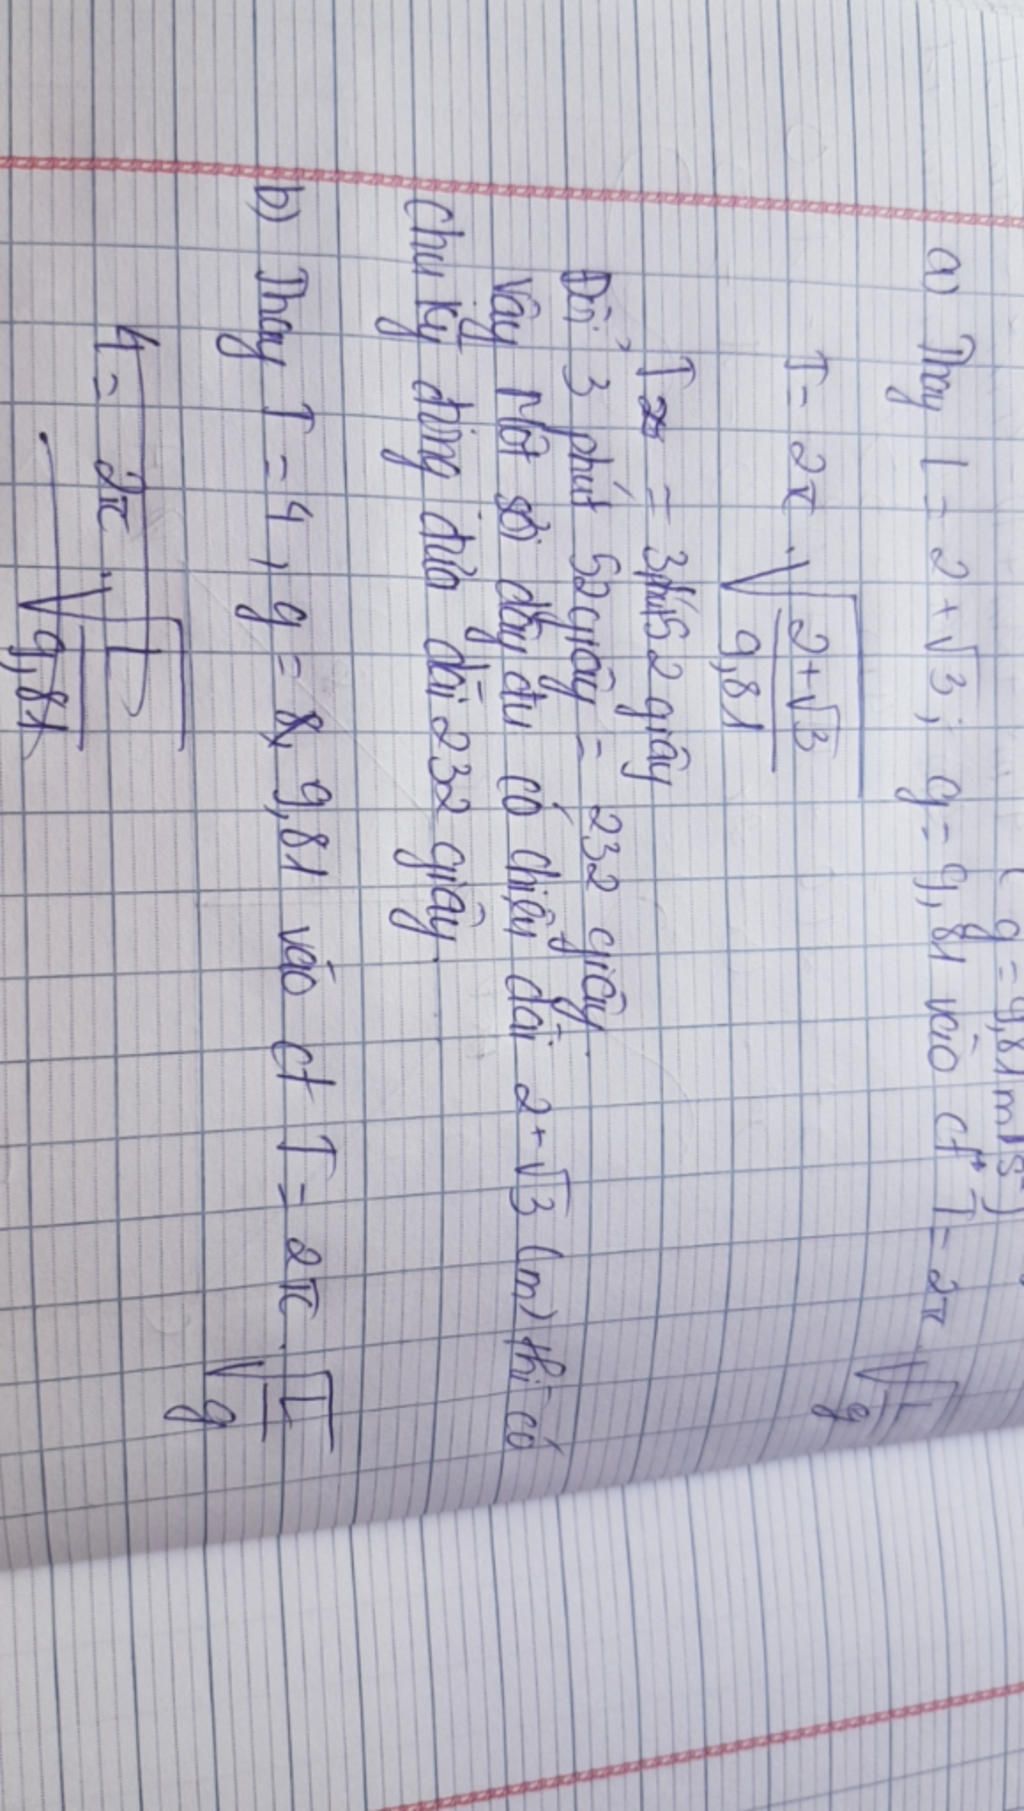 ( g = 9,81 m/s²)
a) Thay L = 2 + √3 ; g = 9,81 vào ct T = 2π √(L/g)
T = 2π . √((2+√3)/9,81)
T = 3 phút 52 giây
Đổi 3 phút 52 giây = 232 giây.
Vậy Một sợi dây đu có chiều dài 2 + √3 (m) thì có
chu kỳ đừng đưa dài 232 giây.
b) Thay T = 4 , g = 9,81 vào ct T = 2π . √(L/g)
4 = 2π . √(L/9,81)